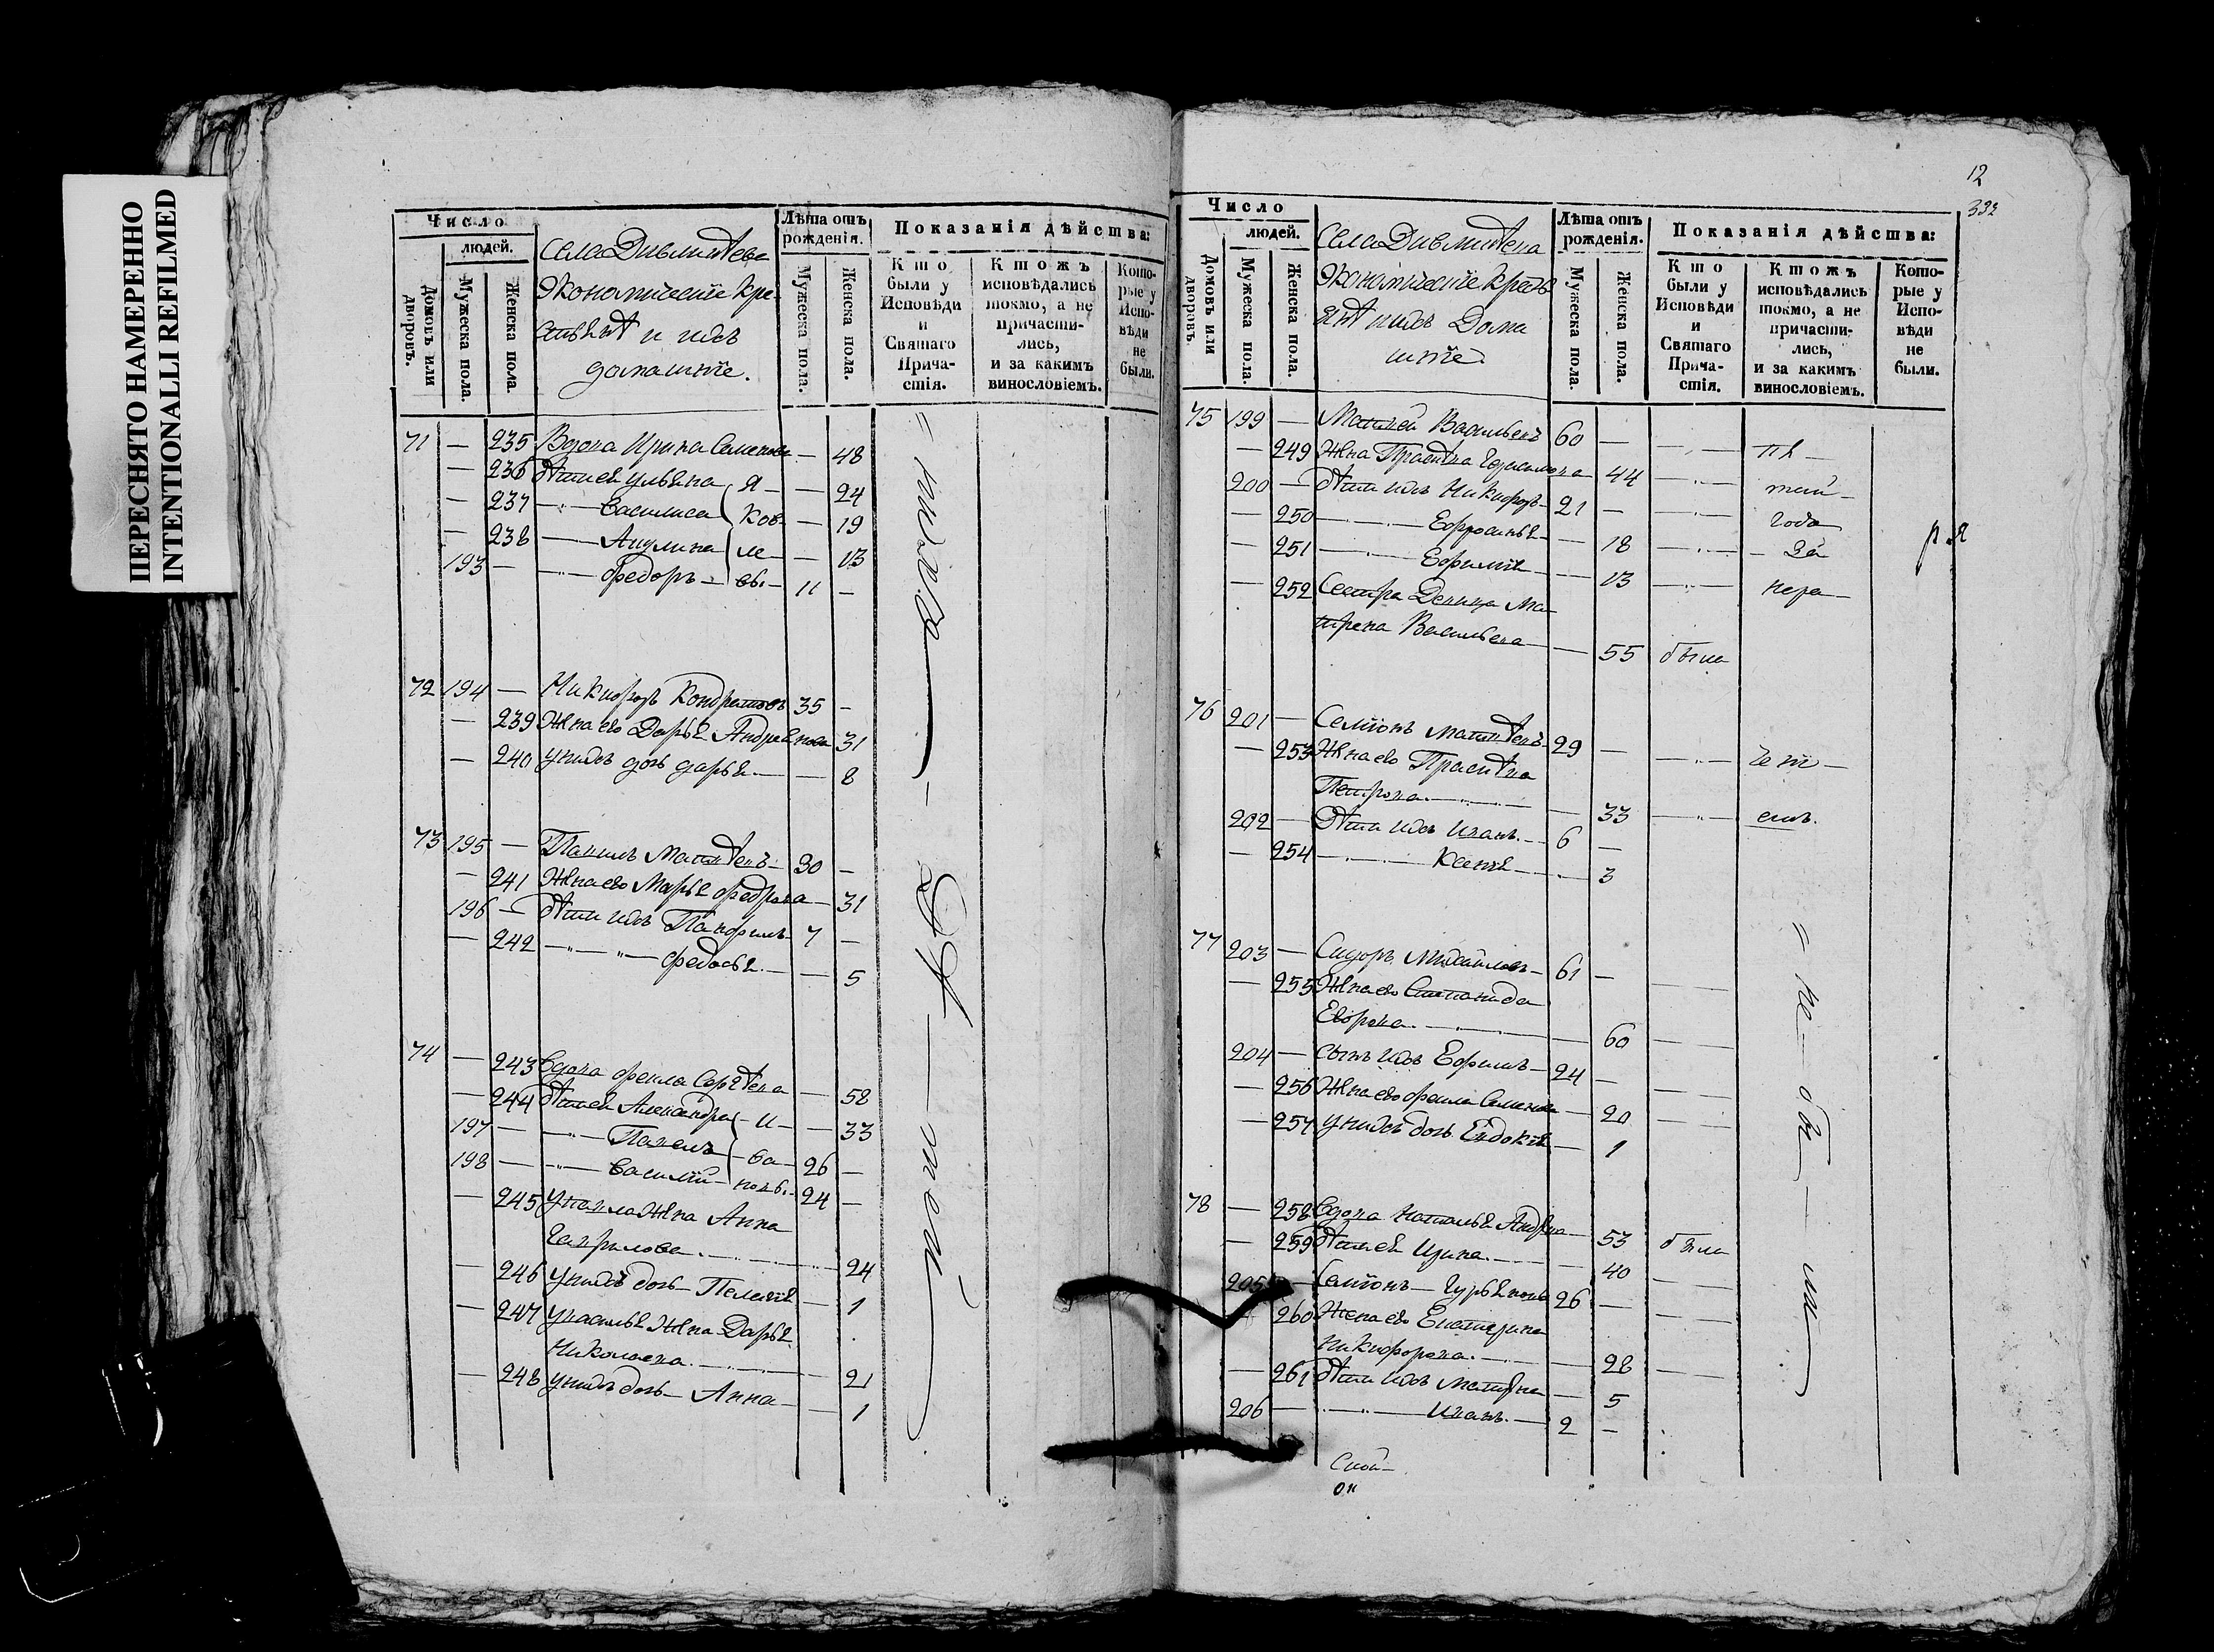 ПЕРЕСНЯТО НАМЕРЕННО
INTENTIONALLI REFILMED
Число
людей.
Домовъ или дворовъ.
Мужеска пола.
Женска пола.
Села
Экономическіе кре-
стьянѣ и ихъ
домашніе.
Лѣта отъ рожденія.
Мужеска пола.
Женска пола.
Показанія дѣйства:
Кто были у Исповѣди и Святаго Причастія.
Ктожъ исповѣдались токмо, а не причастились, и за какимъ винословіемъ.
Которые у Исповѣди не были.
71 — 235 Вдова Ирина Семенова — 48
— 236 Дѣти ея Ульяна Я — — 24
— 237 — Василиса ков — — 19
— 238 — Акулина ле — — 13
193 — — Федоръ — вы — 11 —
72 194 — Никифоръ Кондратовъ 35 —
— 239 Жена ево Дарья Андреянова 31
— 240 у нихъ дочь дарья — — 8
73 195 — Павилъ Матвѣевъ — 30 —
— 241 Жена ево Марья Федрова — 31
196 — Дѣти ихъ Панфилъ 7 —
— 242 — Федосья — — 5
74 — 243 Вдова Фекла Сергѣева — 58
— 244 Дѣти ея Александра — И — — 33
197 — — Павелъ — ва — 26 —
198 — — Василий — новы — 24 —
— 245 у павла жена Анна
Гаврилова — 24
— 246 у нихъ дочь — Пелагѣя — 1
— 247 у василья Жена Дарья
Николаева — 21
— 248 у нихъ дочь — Анна — — 1
12
332
Число
людей.
Домовъ или дворовъ.
Мужеска пола.
Женска пола.
Села
Экономическіе кресть-
янѣ ихъ Дома
шніе
Лѣта отъ рожденія.
Мужеска пола.
Женска пола.
Показанія дѣйства:
Кто были у Исповѣди и Святаго Причастія.
Ктожъ исповѣдались токмо, а не причастились, и за какимъ винословіемъ.
Которые у Исповѣди не были.
75 199 — Матвей Васильевъ 60 —
— 249 Жена Прасковья Герасимова 44
200 — Дѣти ихъ Никифоръ — 21 —
250 — Ефросинья — — 18
— 251 — Ефимія — — 13
— 252 Сестра Девица Ма-
трена Васильева — — 55 была
76 201 — Семіонъ Матвѣевъ 29 —
— 253 Жена ево Прасковья
Петрова — — 33
202 — Дѣти ихъ Иванъ — 6 —
— 254 — Ксенія — — 3
77 203 — Сидоръ Михайловъ — 61 —
— 255 Жена ево Степанида
Егорова — — 60
204 — Сынъ ихъ Ефимъ — 24 —
— 256 Жена ево Фекла Семенова — 20
— 257 у нихъ дочь Евдокія — 1
78 — 258 Вдова Наталья Андрева — 53 была
— 259 Дѣти ея Ирина — 40
205 — Семіонъ — Гурьяновы 26 —
260 Жена ево Екатерина
Никифорова — — 28
— 261 Дѣти ихъ Матрена — 5
206 — — Иванъ — 2 —